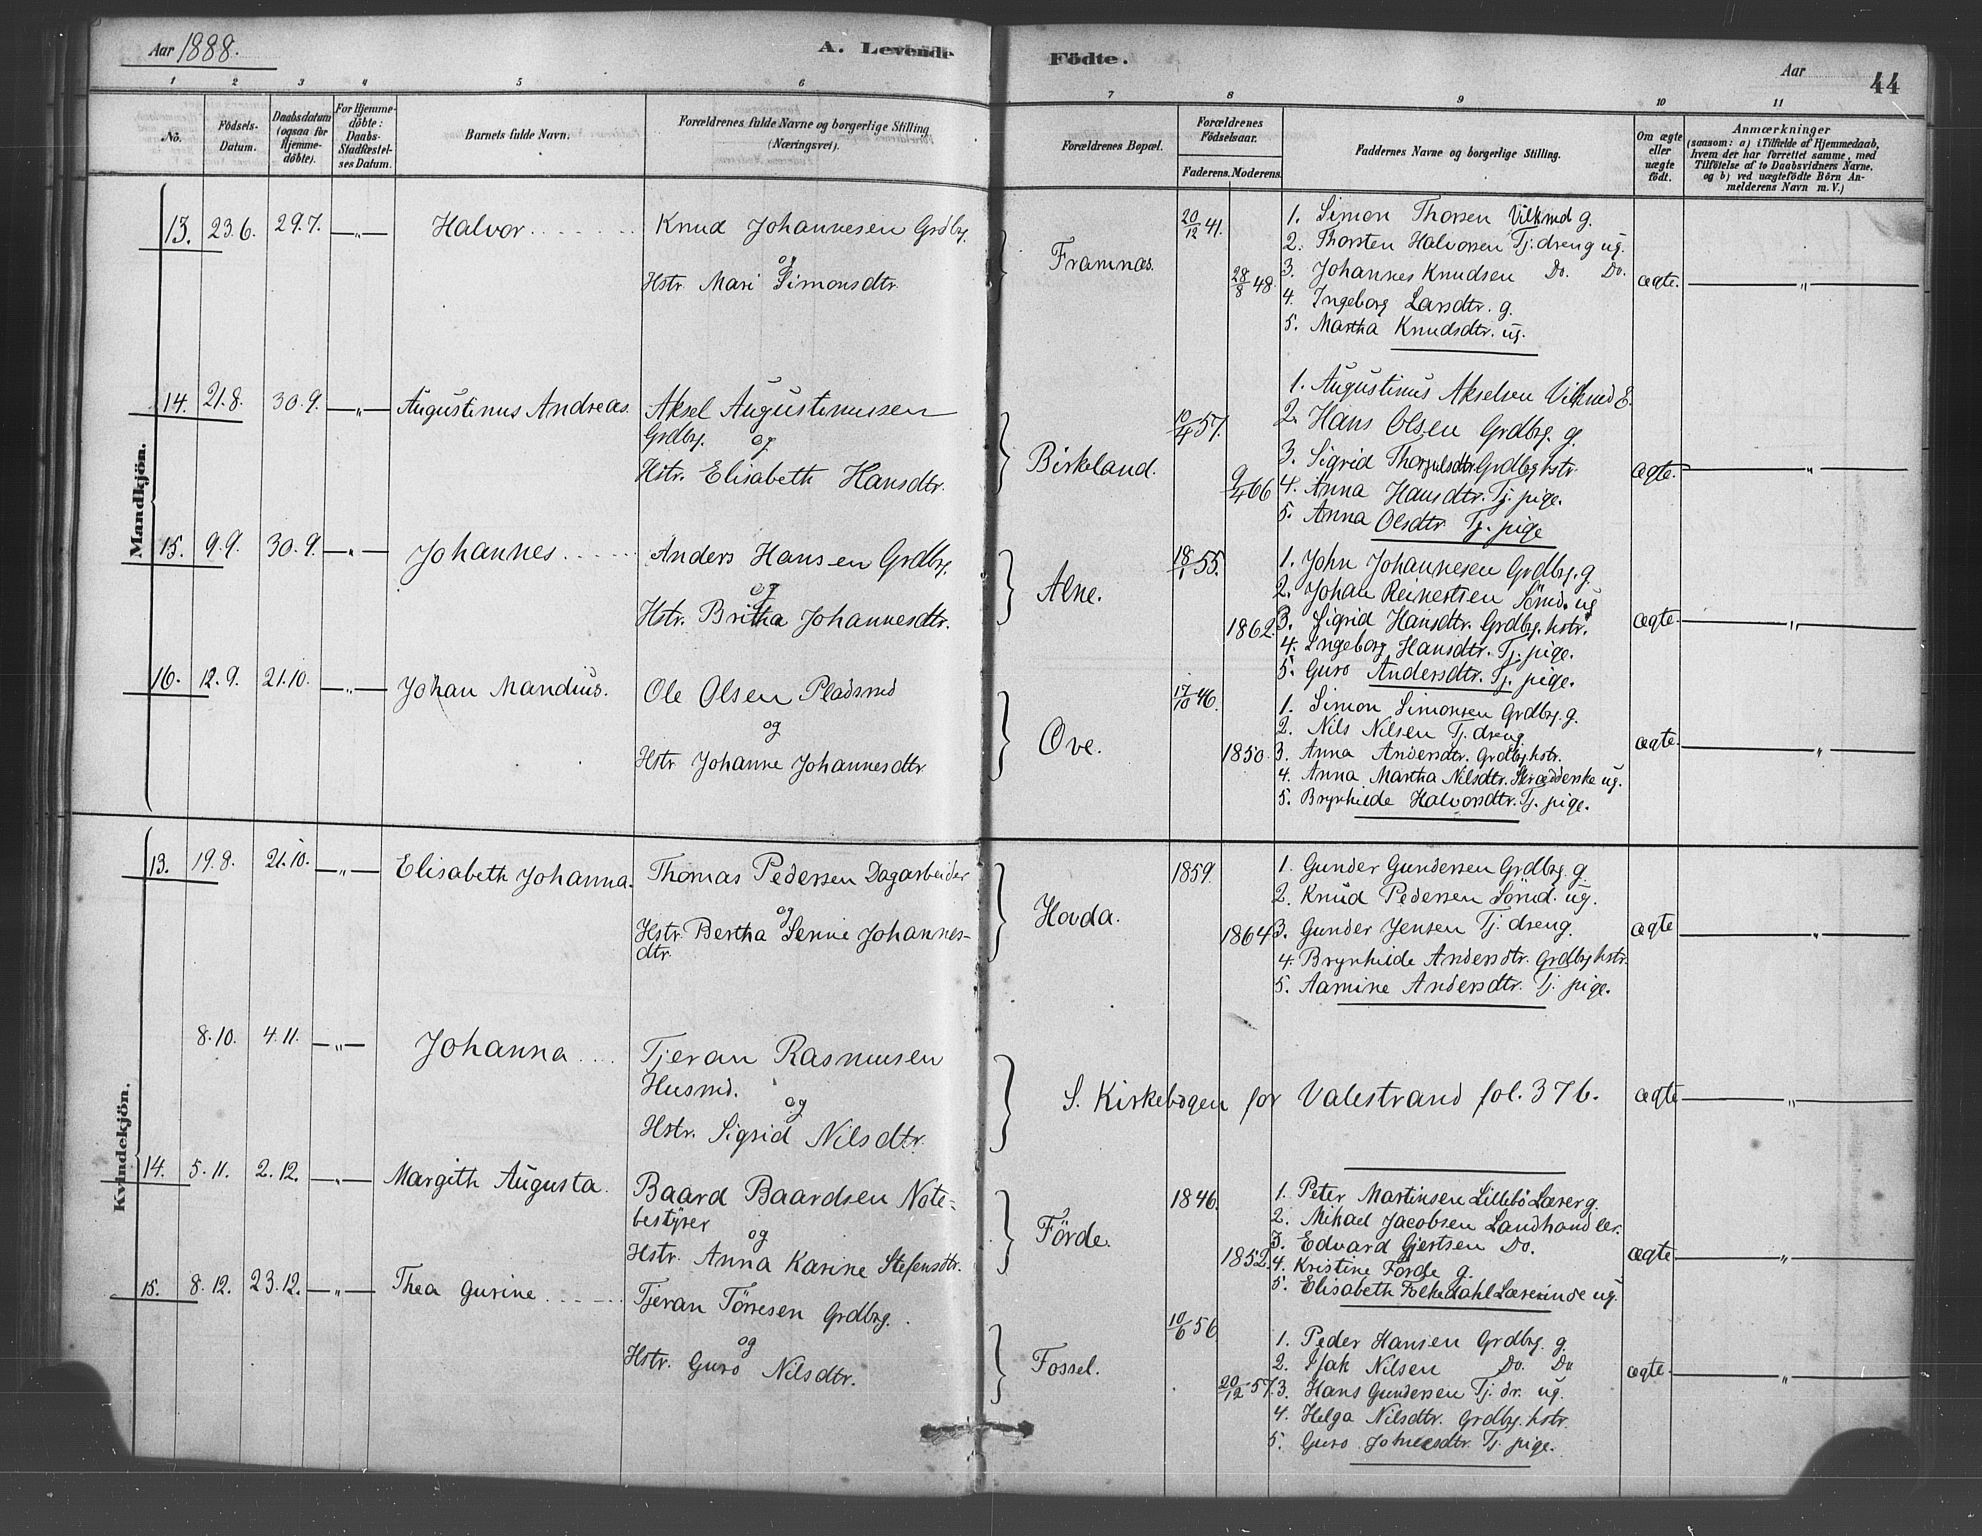 Aar 1888.
A. Levende
Födte.
Aar
44
1 2 3 4 5 6 7 8 9 10 11
No.
Födsels-
Datum.
Daabsdatum
(ogsaa for
Hjemme-
döbte).
For Hjemme-
döbte:
Daabs-
Stadfæstel-
ses Datum.
Barnets fulde Navn.
Forældrenes fulde Navne og borgerlige Stilling
(Næringsvei).
Forældrenes Bopæl.
Forældrenes
Födselsaar.
Faderens. Moderens.
Faddernes Navne og borgerlige Stilling.
Om ægte
eller
uægte
födt.
Anmærkninger
(saasom: a) i Tilfælde af Hjemmedaab,
hvem der har forrettet samme, med
Tilföielse af to Daabsvidners Navne,
og b) ved uægtefödte Börn An-
melderens Navn m. V.)
Mandkjön.
13. 23.6. 29.7. —"— Halvor
Knud Johannesen Grdbr.
og
Hstr. Mari Simonsdtr.
Framnæs.
20/12 41.
28/8 48.
1. Simon Thorsen Vilkmd g.
2. Thorsten Halvorsen Tj. dreng ug.
3. Johannes Knudsen Do. Do.
4. Ingeborg Larsdtr. g.
5. Martha Knudsdtr. ug.
ægte. "
14. 21.8. 30.9. —"— Augustinus Andreas.
Aksel Augustinussen
Grdbr.
og
Hstr. Elisabeth Hansdtr.
Birkeland.
10/4 57.
9/4 66
1. Augustinus Akselsen Vilkmd E.
2. Hans Olsen Grdbr. g.
3. Sigrid Grdbrhstr.
4. Anna Hansdtr. Tj. pige.
5. Anna Olsdtr Tj. pige
ægte. "
15. 9.9. 30.9. —"— Johannes
Anders Hansen Grdbr.
og
Hstr. Britha Johannesdtr.
Alne.
18/1 55.
1862.
1. John Johannesen Grdbr. g.
2. Johan Reinertsen Sömd. ug
3. Sigrid Hansdtr. Grdbr. hstr.
4. Ingeborg Hansdtr. Tj. pige.
5. Guro Andersdtr. Tj. pige.
ægte. "
16. 12.9. 21.10. —"— Johan Mandius.
Ole Olsen Pladsmd
og
Hstr Johanne Johannesdtr
Ove.
17/10 46.
1850.
1. Simon Simonsen Grdbr. g.
2. Nils Nilsen Tj. dreng
3. Anna Andersdtr. Grdbr. hstr.
4. Anna Martha Nilsdtr. Skrædderske ug.
5. Brynhilde Halvorsdtr. Tj. pige.
ægte. "
Kvindekjön.
13. 19.8. 21.10. —"— Elisabeth Johanna.
Thomas Pedersen Dagarbeider
og
Hstr. Bertha Serine Johannes-
dtr.
Hovda.
1859.
1864
1. Gunder Gundersen Grdbr. g.
2. Knud Pedersen Sömd. ug.
3. Gunder Jensen Tj. dreng.
4. Brynhilde Andersdtr. Grdbr hstr.
5. Aamine Andersdtr. Tj. pige.
ægte "
8.10. 4.11. —"— Johanna
Tjeran Rasmussen
Husmd.
og
Hstr. Sigrid Nilsdtr.
S. Kirkebogen for Valestrand fol. 376.
ægte "
14. 5.11. 2.12. —"— Margith Augusta.
Baard Baardsen Note-
bestyrer
og
Hstr. Anna Karine Stefensdtr.
Förde.
1846.
1852.
1. Peter Martinsen Lillebö Lærer g.
2. Mikael Jacobsen Landhandler.
3. Edvard Gjertsen Do.
4. Kristine Förde g.
5. Elisabeth Folkedahl Lærerinde ug.
ægte "
15. 8.12. 23.12. —"— Thea Gurine
Tjeran Törresen Grdbr.
og
Hstr. Guro Nilsdtr.
Fossel.
10/6 56
20/12 57.
1. Peder Hansen Grdbr. g.
2. Isak Nilsen Do. Do
3. Hans Gundersen Tj. dr. ug.
4. Helga Nilsdtr. Grdbr. hstr.
5. Guro Tj. pige.
ægte. "